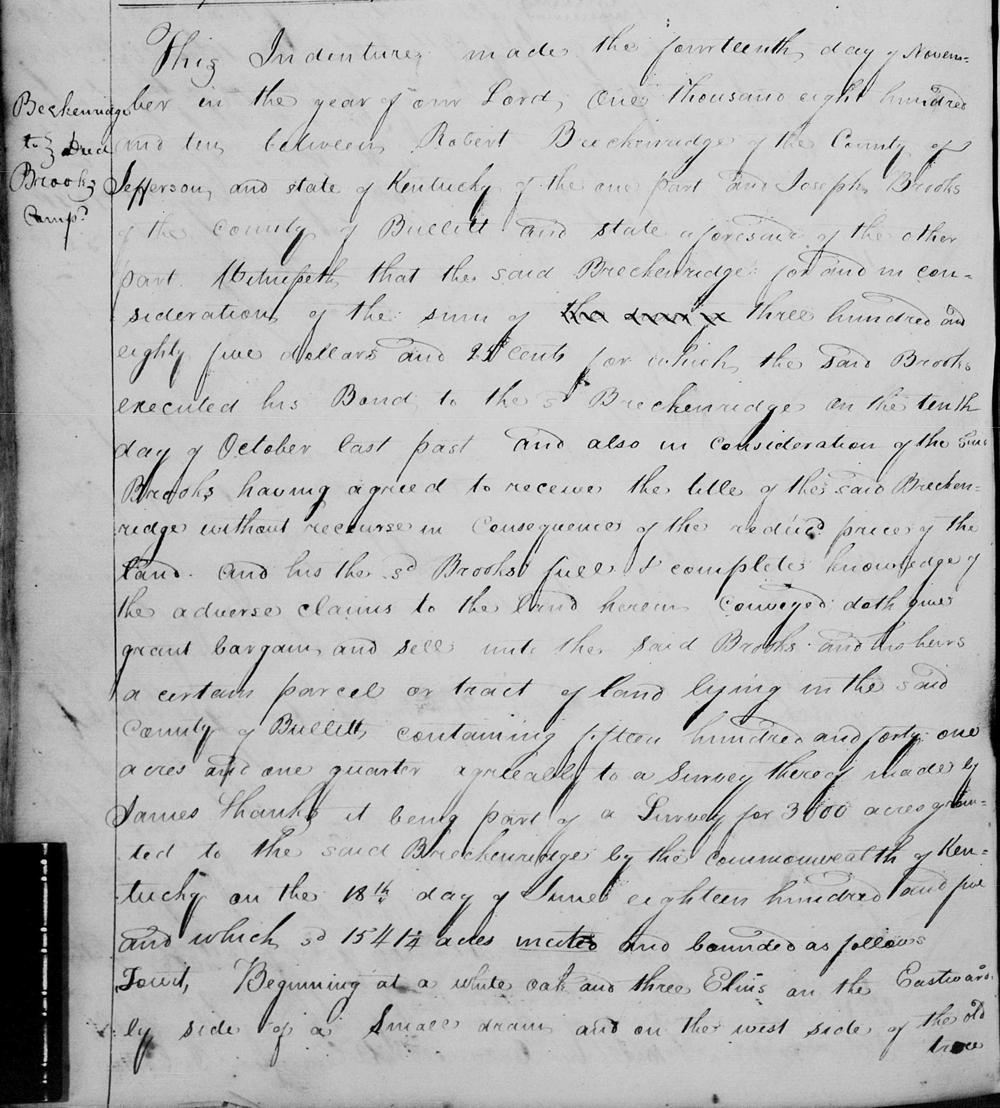 This Indenture made the fourteenth day of Novem-
ber in the year of our Lord, One thousand eight hundred
and ten between Robert Breckenridge of the County of
Jefferson and state of Kentucky of the one part and Joseph Brooks
of the county of Bullitt and state aforesaid of the other
part. Witnesseth that the said Breckenridge for and in con-
sideration of the sum of three hundred and
eighty five dollars and cents for which the said Brooks
executed his Bond to the sd Breckenridge on the tenth
day of October last past and also in consideration of the said
Brooks having agreed to receive the title of the said Brecken-
ridge without recourse in consequence of the reduced price of the
land. and his the sd Brooks full & complete knowledge of
the adverse claims to the land herein conveyed doth give
grant bargain and sell unto the said Brooks and his heirs
a certain parcel or tract of land lying in the said
County of Bullitt, containing fifteen hundred and forty one
acres and one quarter agreeably to a Survey thereof made by
James Shanks it being part of a Survey for 3000 acres gran-
ted to the said Breckenridge by the commonwealth of Ken-
tucky on the 18th day of June eighteen hundred and five
and which sd 1541¼ acres and bounded as follows
Towit, Beginning at a white oak and three Elms on the Eastward-
ly side of a Small drain and on the west side of the old
trace
Beckenridge
to } Deed
Brooks
Comp.d